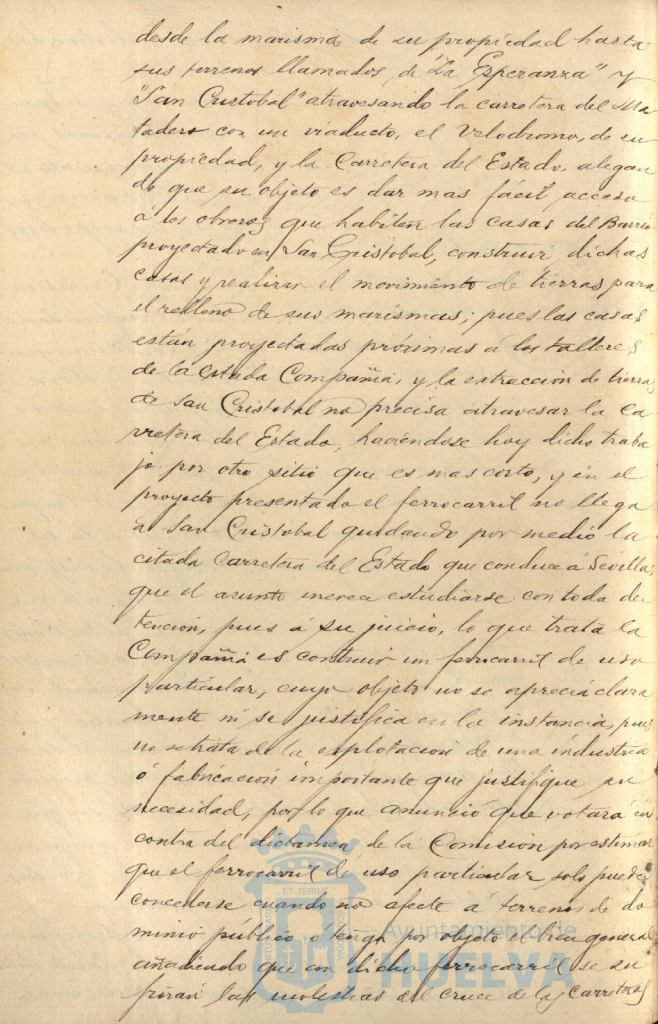 desde la marisma de su propiedad hasta
sus terrenos llamados, de "La Esperanza" y
"San Cristobal" atravesando la carretera del Ma
tadero con un viaducto, el Velodromo, de su
propiedad, y la Carretera del Estado, alegan
do que su objeto es dar mas fácil acceso
á los obreros que habiten las casas del Barrio
proyectado en San Cristobal, construir dichas
casas y realizar el movimiento de tierras para
el relleno de sus marismas; pues las casas
están proyectadas próximas á los talleres
de la citada Compañia, y la extraccion de tierras
de San Cristobal no precisa atravesar la ca
rretera del Estado, haciéndose hoy dicho traba
jo por otro sitio que es mas corto, y en el
proyecto presentado el ferrocarril no llega
á San Cristobal quedando por medio la
citada Carretera del Estado que conduce á Sevilla;
que el asunto merece estudiarse con toda de
tencion, pues á su juicio, lo que trata la
Compañia es construir un ferrocarril de uso
particular, cuyo objeto no se aprecia clara
mente ni se justifica en la instancia, pues
no se trata de la explotacion de una industria
ó fabricacion importante que justifique su
necesidad, por lo que anunció que votará en
contra del dictamen de la Comision por estimar
que el ferrocarril de uso particular solo puede
concederse cuando no afecte á terrenos de do
minio público ó tenga por objeto el bien general
añadiendo que con dicho ferrocarril se su
firán las molestias del cruce de las Carreteras
ET TERRA
Ayuntamiento de
HUELVA